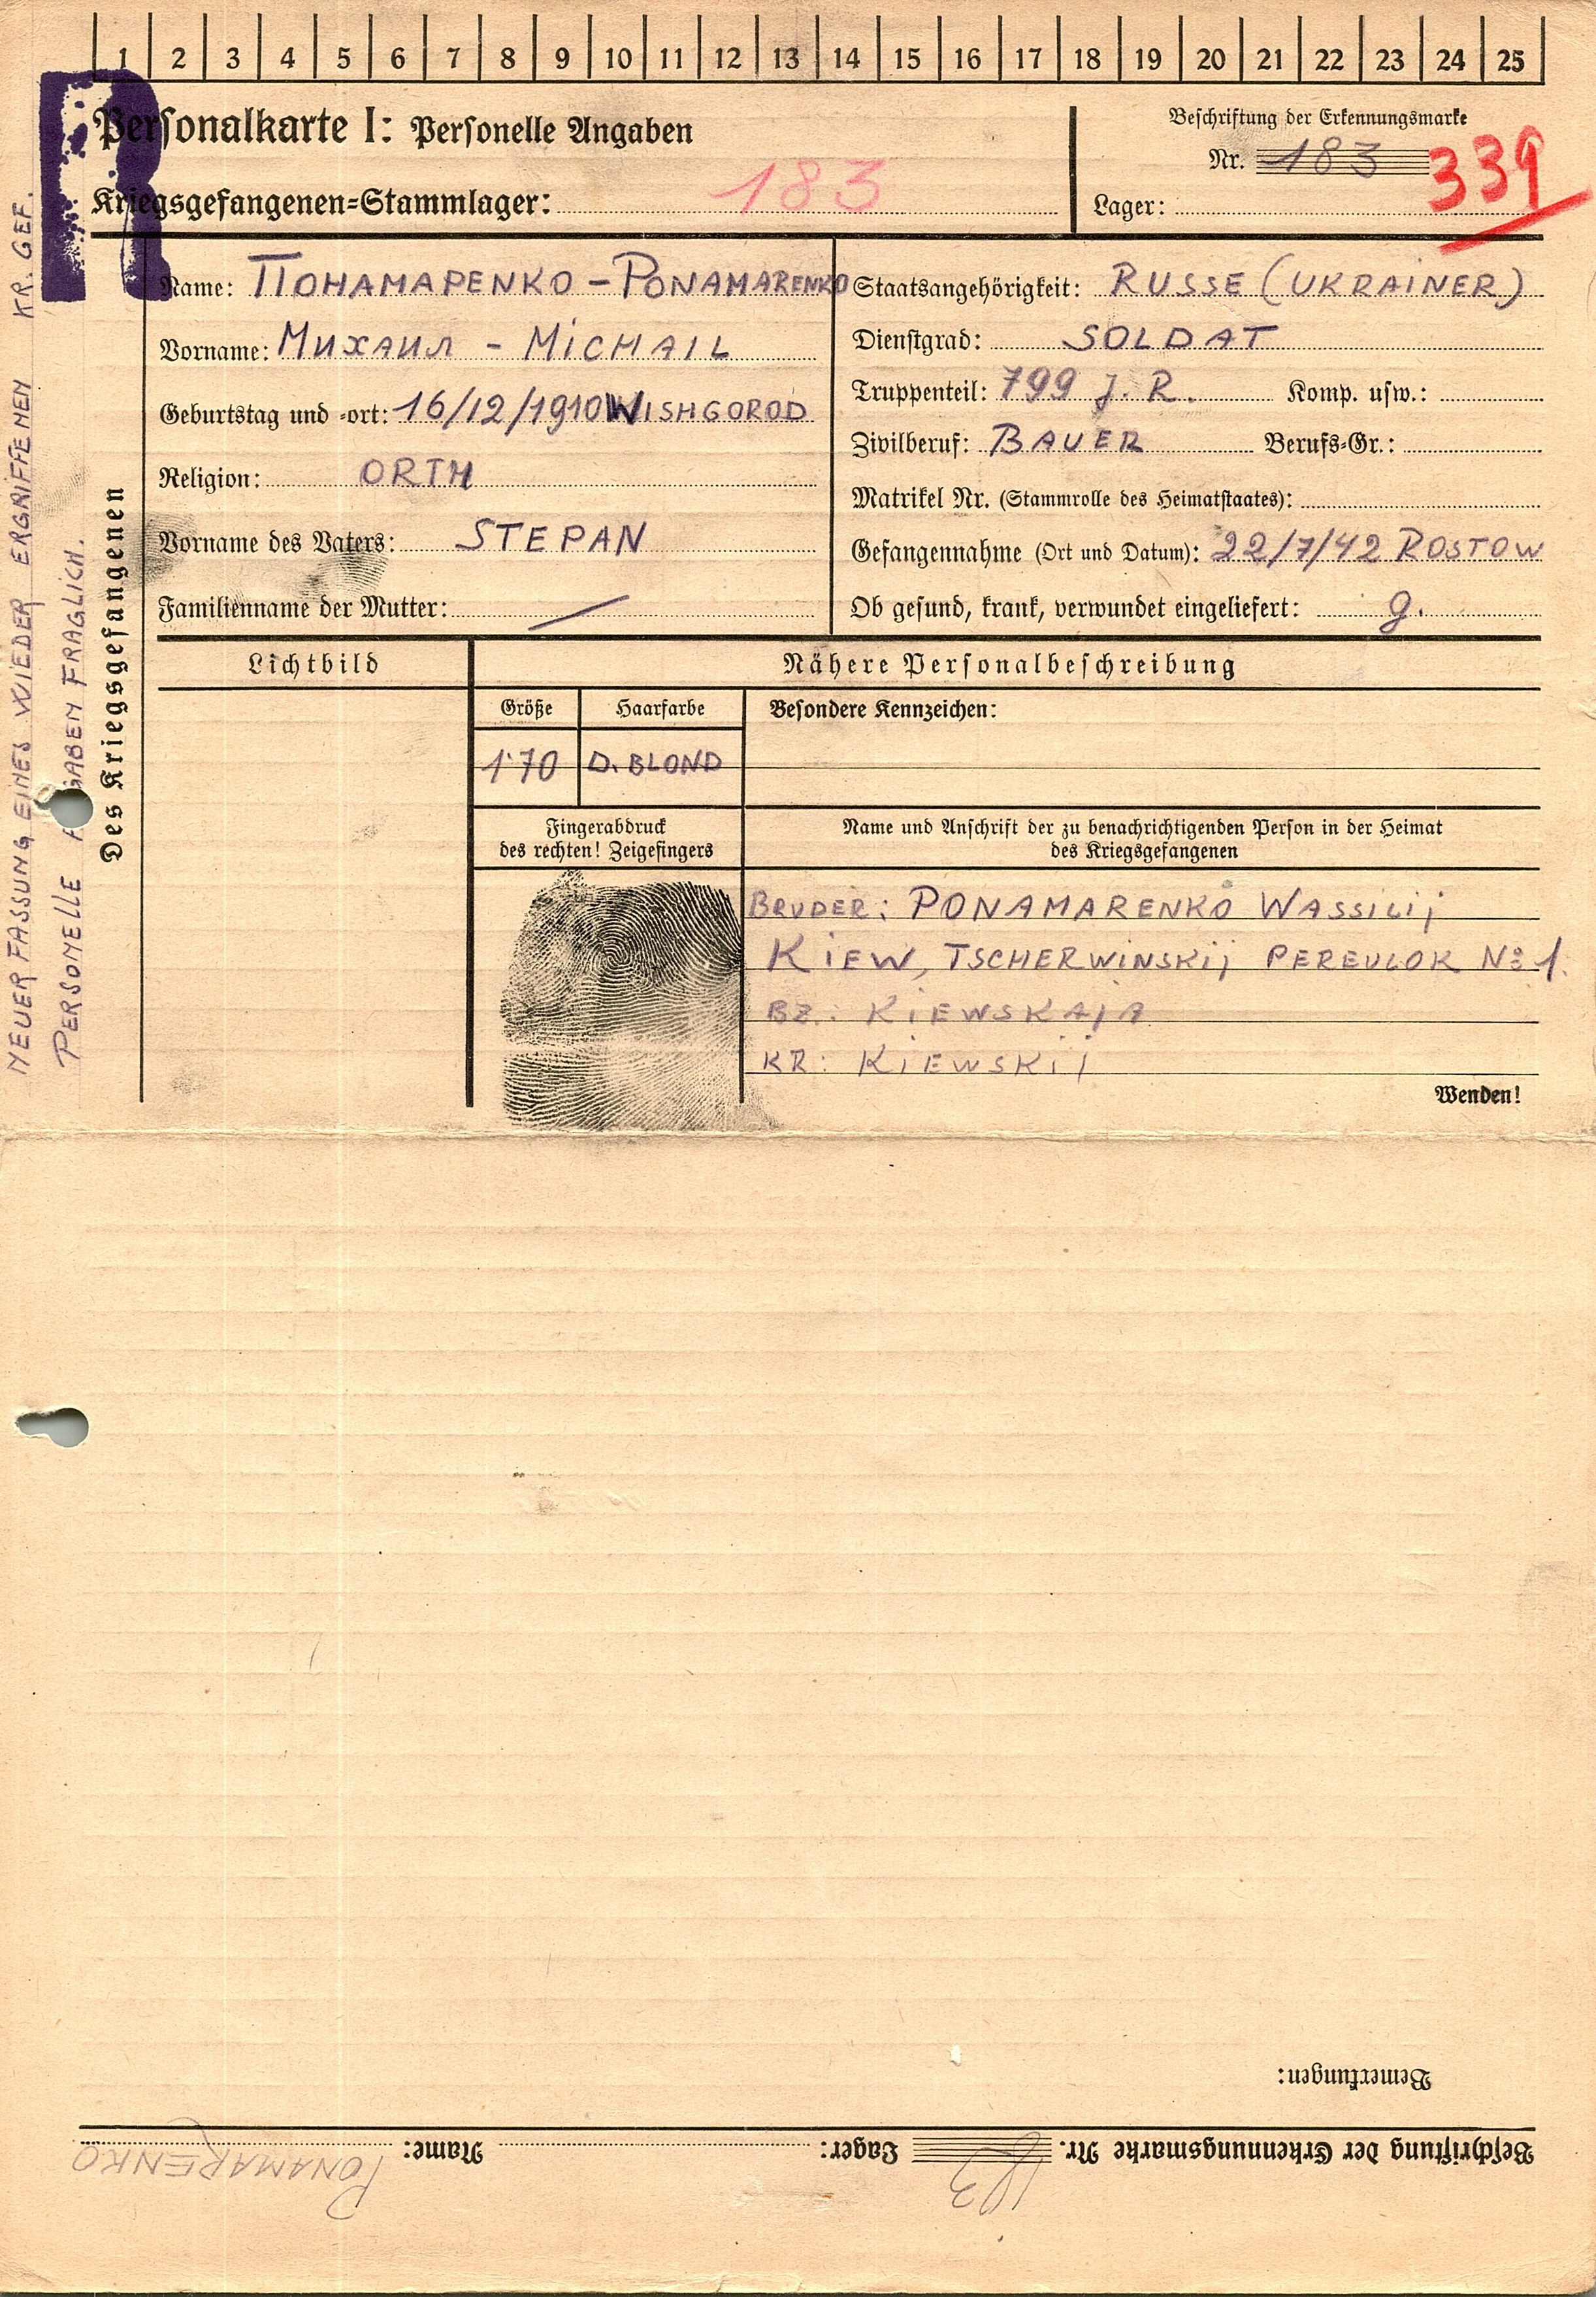 1 2 3 4 5 6 7 8 9 10 11 12 13 14 15 16 17 18 19 20 21 22 23 24 25
Personalkarte I: Personelle Angaben
Kriegsgefangenen=Stammlager: 183
Beschriftung der Erkennungsmarke
Nr. 183 339
Lager:
R
NEUERFASSUNG EINES WIEDER ERGRIFFENEN KR. GEF.
PERSONELLE A GABEN FRAGLICH.
Des Kriegsgefangenen
Name: ПОНАМАРЕНКО – PONAMARENKO
Vorname: Михаил – MICHAIL
Geburtstag und =ort: 16/12/1910 WISHGOROD
Religion: ORTH
Vorname des Vaters: STEPAN
Familienname der Mutter: —
Staatsangehörigkeit: RUSSE (UKRAINER)
Dienstgrad: SOLDAT
Truppenteil: 799 J. R. Komp. usw.:
Zivilberuf: BAUER Berufs=Gr.:
Matrikel Nr. (Stammrolle des Heimatstaates):
Gefangennahme (Ort und Datum): 22/7/42 ROSTOW
Ob gesund, krank, verwundet eingeliefert: g.
Lichtbild
Nähere Personalbeschreibung
Größe Haarfarbe Besondere Kennzeichen:
1.70 D. BLOND
Fingerabdruck
des rechten! Zeigefingers
Name und Anschrift der zu benachrichtigenden Person in der Heimat
des Kriegsgefangenen
BRUDER: PONAMARENKO WASSILIJ
KIEW, TSCHERWINSKIJ PEREULOK № 1.
BZ.: KIEWSKAJA
KR: KIEWSKIJ
Wenden!
Bemerkungen:
Beschriftung der Erkennungsmarke Nr. 183 Lager: Name: PONAMARENKO